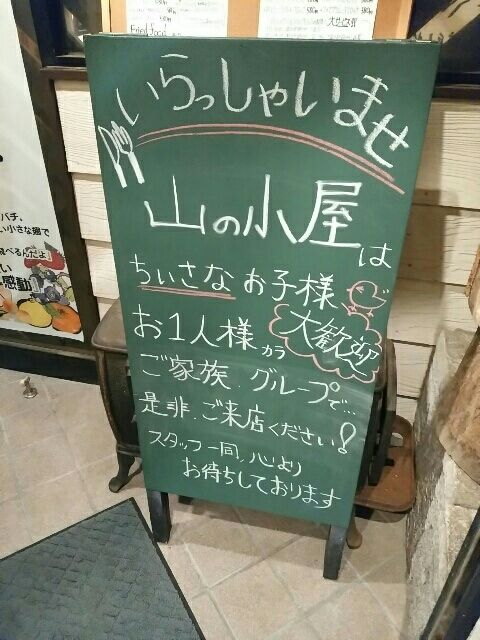 いらっしゃいませ
山の小屋は
ちいさなお子様
大歓迎
お1人様カラ
ご家族.グループで...
是非.ご来店ください!
スタッフ一同.心より
お待ちしております
バチ、
い小さな翅で
飛べるんだよ」
い
感動